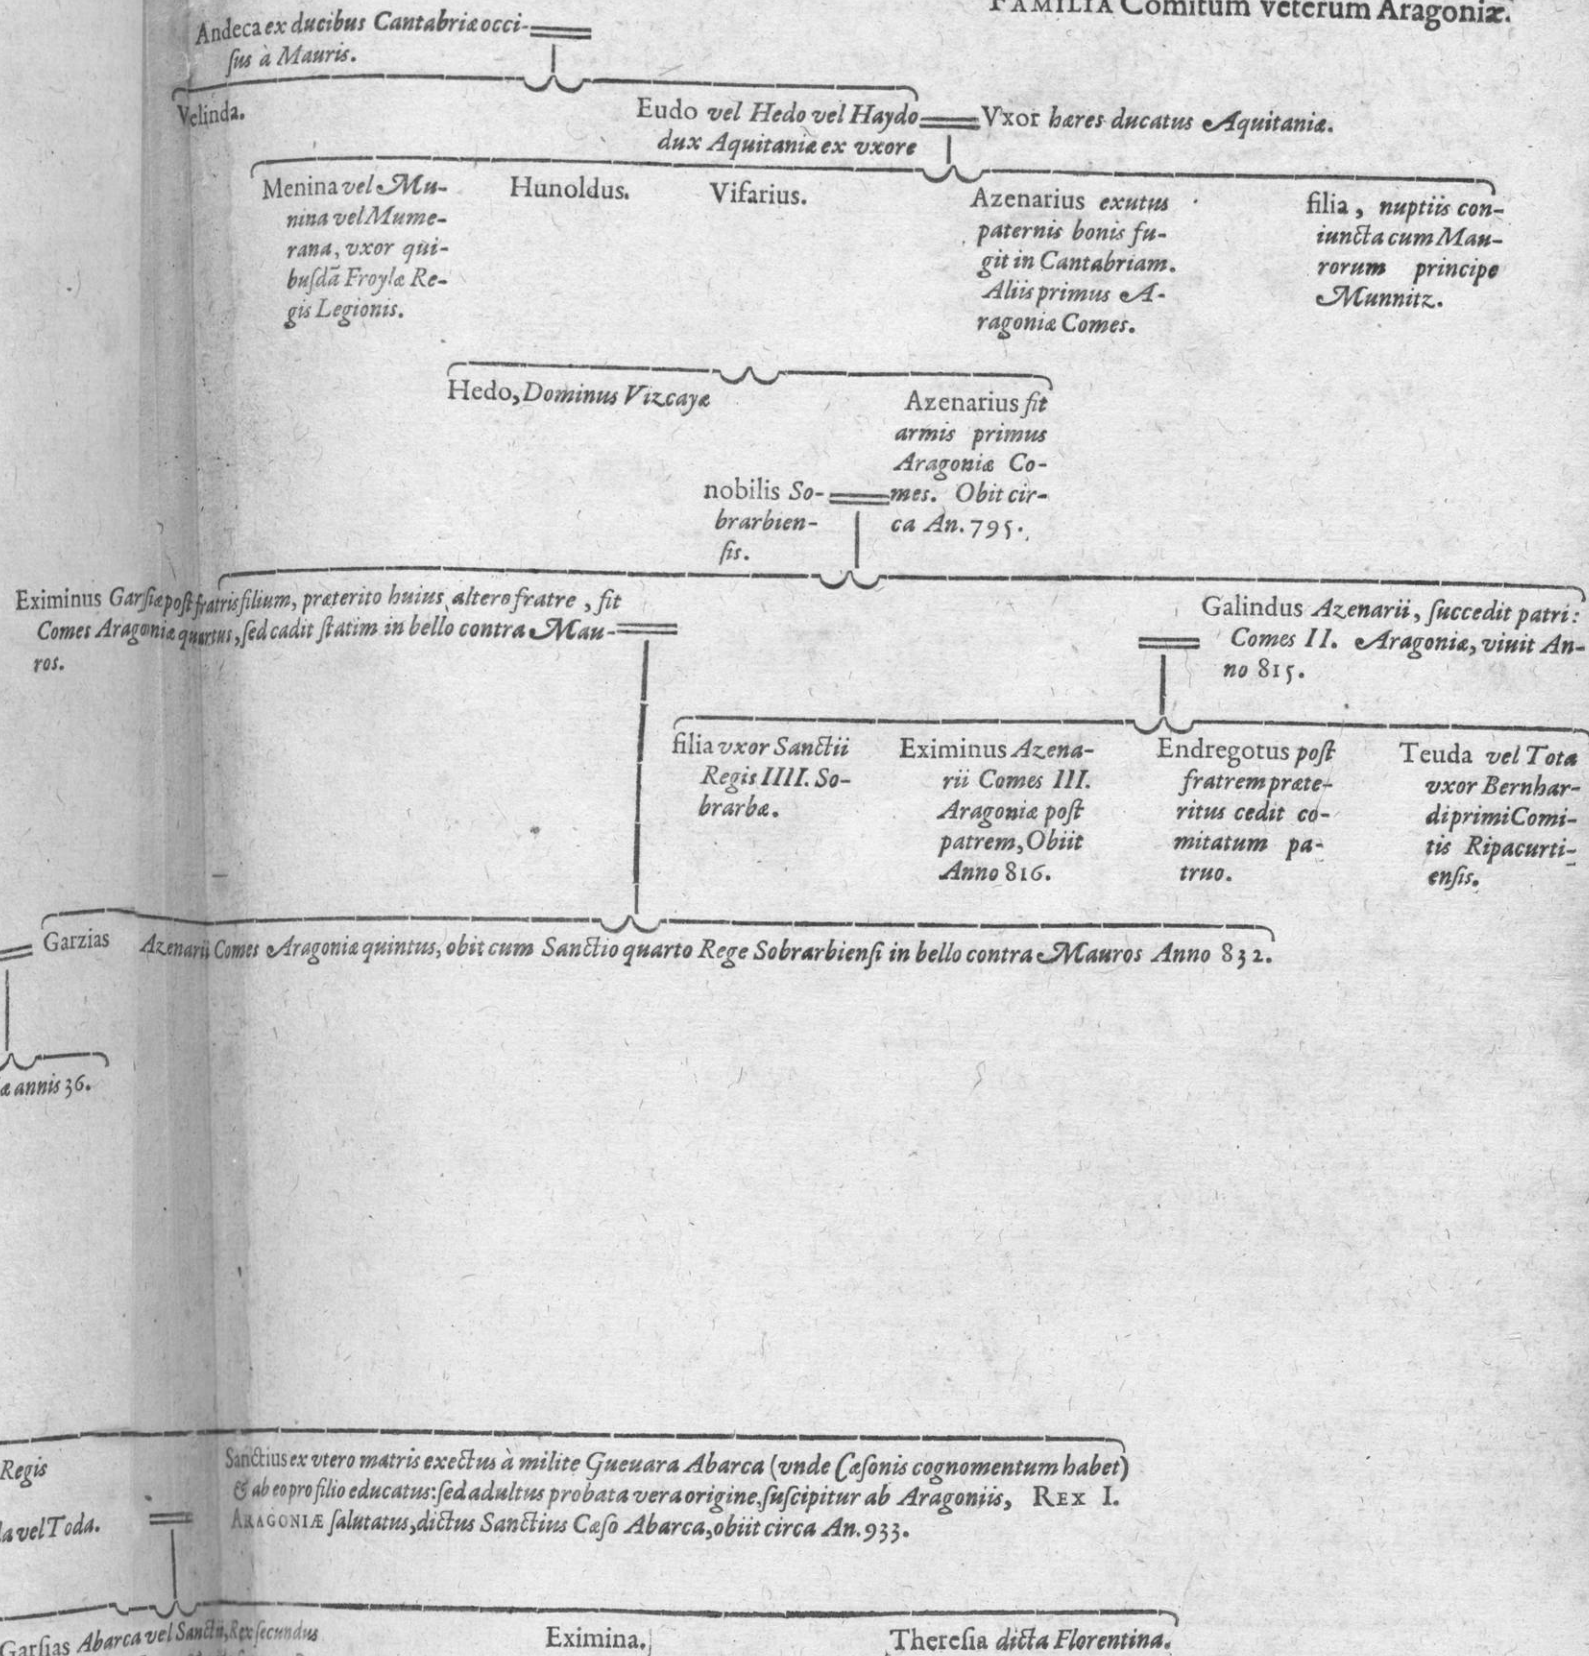 FAMILIA Comitum veterum Aragoniæ.
Andeca ex ducibus Cantabriæ occi-
ſus à Mauris.
Velinda.
Eudo vel Hedo vel Haydo
dux Aquitaniæ ex vxore
Vxor hæres ducatus Aquitaniæ.
Menina vel Mu-
nina vel Mume-
rana, vxor qui-
buſdã Froylæ Re-
gis Legionis.
Hunoldus.
Vifarius.
Azenarius exutus
paternis bonis fu-
git in Cantabriam.
Aliis primus A-
ragoniæ Comes.
filia, nuptiis con-
iuncta cum Mau-
rorum principe
Munnitz.
Hedo, Dominus Vizcayæ
Azenarius fit
armis primus
Aragoniæ Co-
mes. Obit cir-
ca An. 795.
nobilis So-
brarbien-
ſis.
Eximinus Garſiæ poſt fratris filium, præterito huius altero fratre, fit
Comes Aragoniæ quartus, ſed cadit ſtatim in bello contra Mau-
ros.
Galindus Azenarii, ſuccedit patri:
Comes II. Aragoniæ, viuit An-
no 815.
filia vxor Sanctii
Regis IIII. So-
brarbæ.
Eximinus Azena-
rii Comes III.
Aragoniæ poſt
patrem, Obiit
Anno 816.
Endregotus poſt
fratrem præte-
ritus cedit co-
mitatum pa-
truo.
Teuda vel Tota
vxor Bernhar-
di primi Comi-
tis Ripacurti-
enſis.
Garzias Azenarii Comes Aragoniæ quintus, obit cum Sanctio quarto Rege Sobrarbienſi in bello contra Mauros Anno 832.
æ annis 36.
Regis
la vel Toda.
Sanctius ex vtero matris exectus à milite Gueuara Abarca (vnde Cæſonis cognomentum habet)
& ab eo pro filio educatus: ſed adultus probata vera origine, ſuſcipitur ab Aragoniis, REX I.
ARAGONIÆ ſalutatus, dictus Sanctius Cæſo Abarca, obiit circa An. 933.
Garſias Abarca vel Sanctii, Rex ſecundus
Eximina.
Thereſia dicta Florentina.